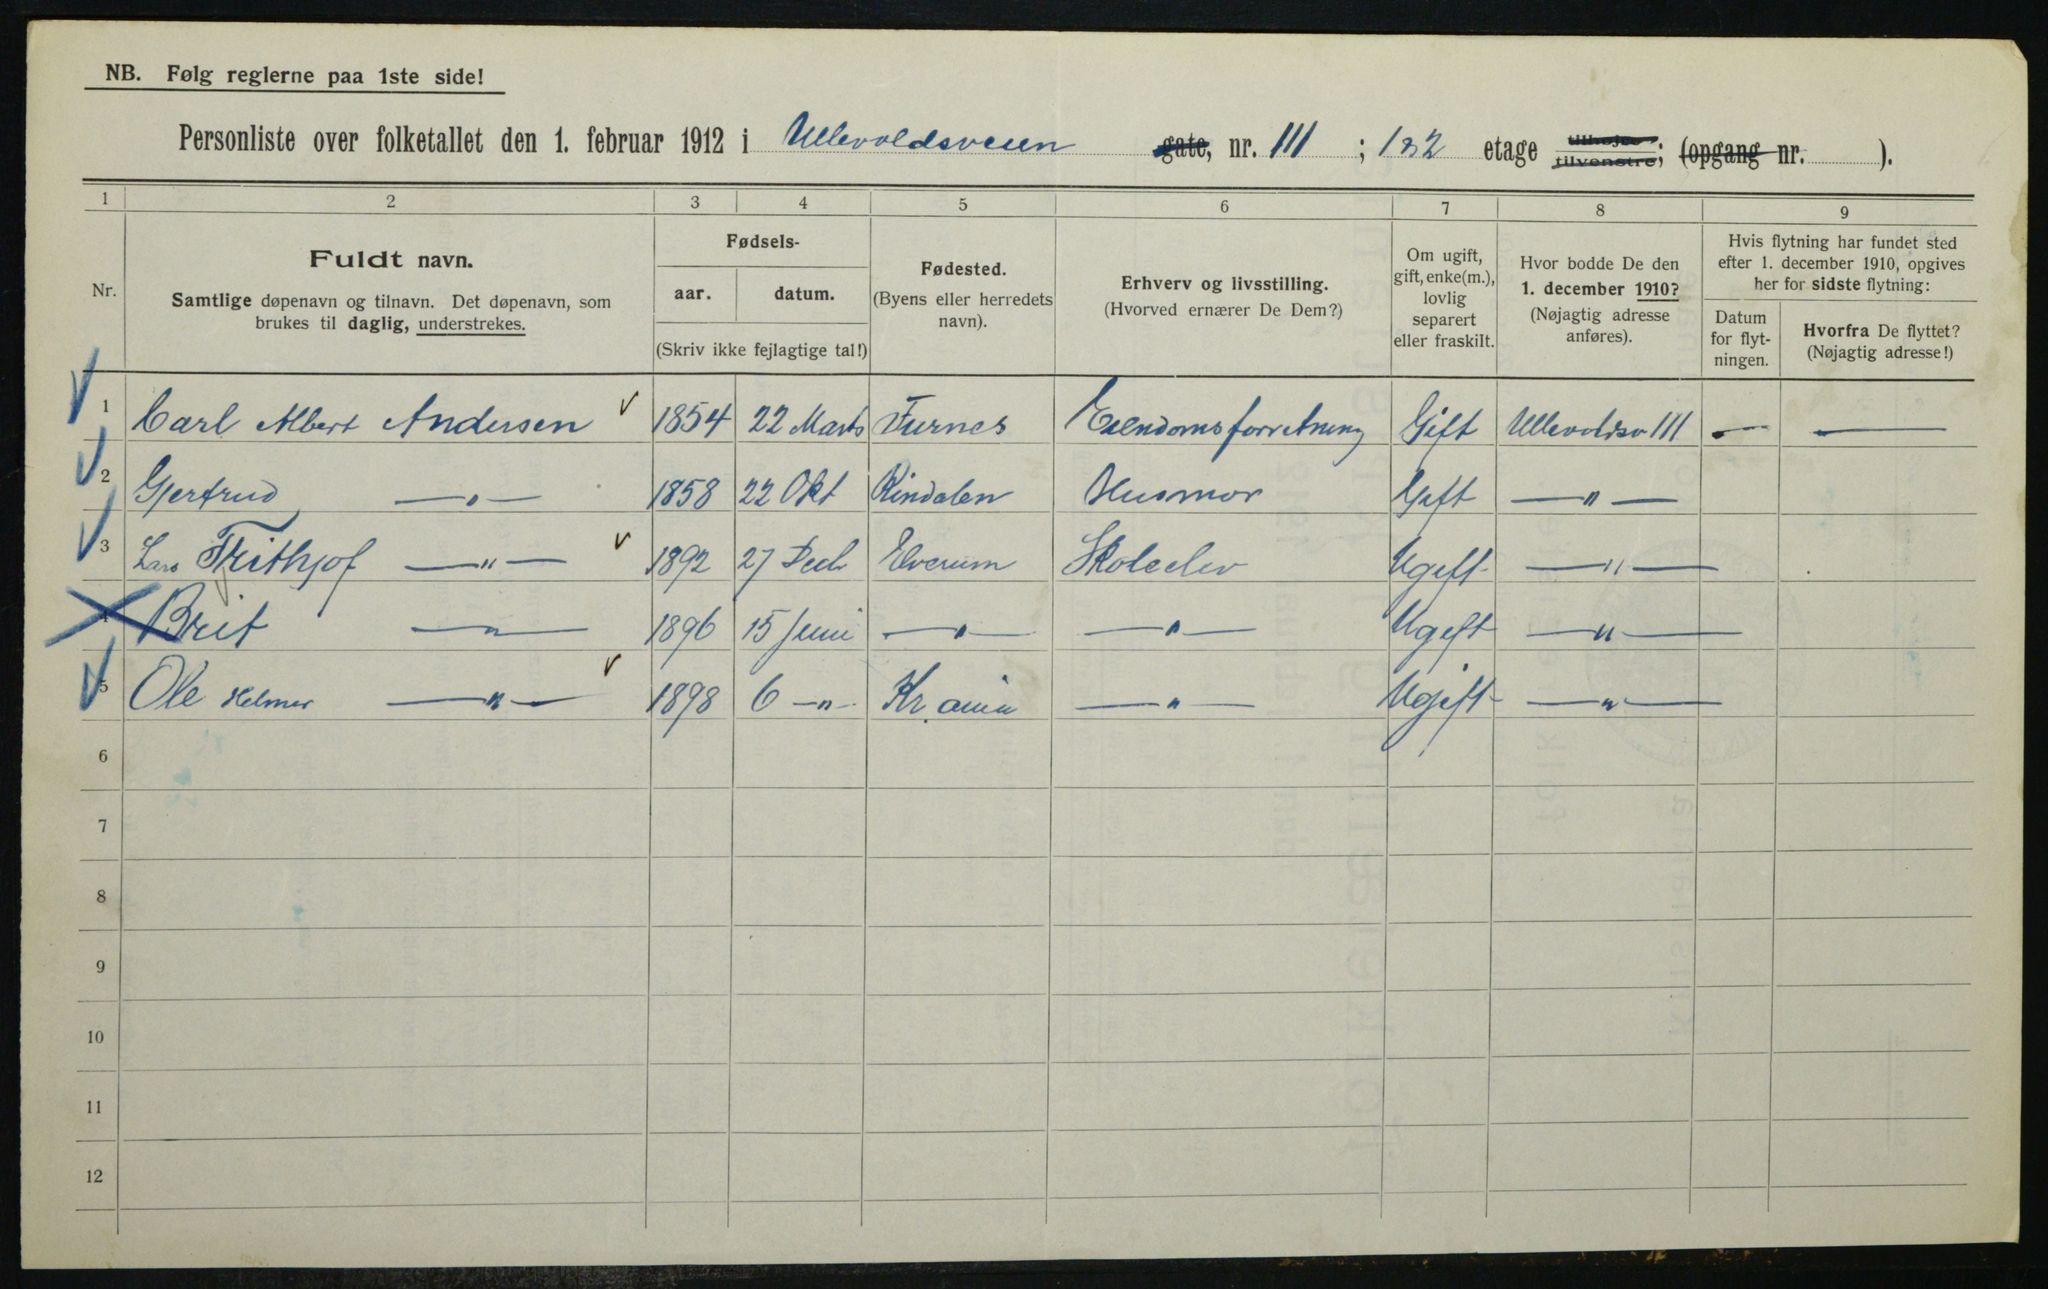 NB. Følg reglerne paa 1ste side!
Personliste over folketallet den 1. februar 1912 i Ullevoldsveien gate, nr. 111 ; 1 & 2 etage tilhøjre, tilvenstre; (opgang nr. ).
1 2 3 4 5 6 7 8 9
Nr.
Fuldt navn.
Samtlige døpenavn og tilnavn. Det døpenavn, som
brukes til daglig, understrekes.
Fødsels-
aar. datum.
(Skriv ikke fejlagtige tal!)
Fødested.
(Byens eller herredets
navn).
Erhverv og livsstilling.
(Hvorved ernærer De Dem?)
Om ugift,
gift, enke(m.),
lovlig
separert
eller fraskilt.
Hvor bodde De den
1. december 1910?
(Nøjagtig adresse
anføres).
Hvis flytning har fundet sted
efter 1. december 1910, opgives
her for sidste flytning:
Datum
for flyt-
ningen.
Hvorfra De flyttet?
(Nøjagtig adresse!)
1 Carl Albert Andersen 1854 22 Marts Furnes Eiendomsforretning Gift Ullevoldsv 111 — —
2 Gjertrud —"— 1858 22 Okt Rindalen Husmor Gift —"—
3 Lars Frithjof —"— 1892 27 Decb Elverum Skoleelev Ugift —"—
4 Brit —"— 1896 15 Juni —"— —"— Ugift —"—
5 Ole Helmer —"— 1898 6 —"— Kr.ania —"— Ugift —"—
6
7
8
9
10
11
12